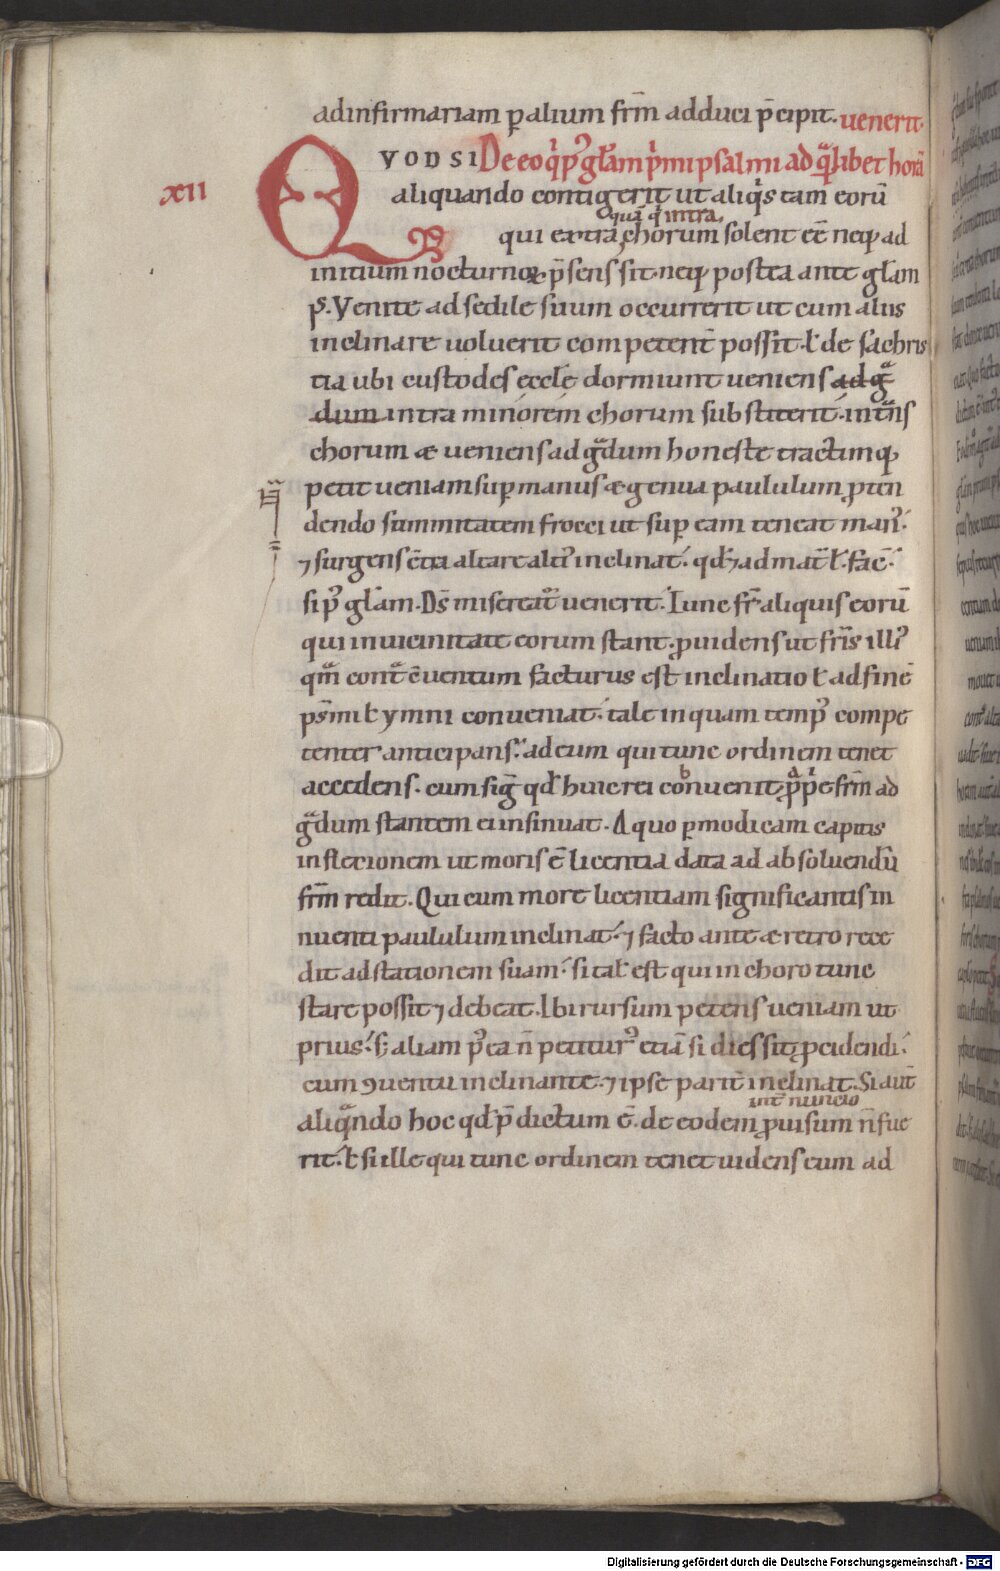 adinfirmariam ꝑ alium fr̄m adduci p̄cipit. uenerit.
QVODSI De eo qͥ pꝰ gl̄am pͥmi psalmi ad qͣlibet horā
xii
aliquando contigerit ut aliqͥs tam eorū
quā qͥ intra
qui extra chorum solent eē̄ neqꝫ ad
initium nocturnoꝝ p̄sens sit. neqꝫ postea ante gl̄am
p̄s. Venite ad sedile suum occurrerit ut cum aliis
inclinare uoluerit competent̄ possit. ƚ de sachris
tia ubi custodes eccl̄e dormiunt ueniens ad gͣ
dum intra minorem chorum substiterit. intͣns
chorum æ ueniens ad gͣdum honeste tractimqꝫ
petit ueniam suꝑ manus æ genua paululum ꝓten
dendo summitatem frocci ut suꝑ eam teneat manꝰ.
⁊ surgens c̄tra altare altiꝰ inclinat. qd̄ ⁊ ad mat̄ ƚ. fac̄.
si pꝰ gl̄am. Ds̄ misereat̄ uenerit. Tunc fr̄ aliquis eorū
qui in uicinitate eorum stant. ꝓuidens ut fr̄is illiꝰ
qͣm contͣ c̄uentum facturus est inclinatio ƚ ad finē
ps̄mi ƚ ymni conueniat. tale inquam tempꝰ compe
tenter anticipans. ad eum qui tunc ordinem tenet
accedens. cum sig̅ qd̄ huic rei conuenit. ꝓpͥe fr̄m ad
gͣdum stantem ei insinuat. A quo ꝑ modicam capitis
inflexionem ut moris ē licentia data ad absoluendū
fr̄m redit. Qui cum more licentiam significantis in
nuenti paululum inclinat. ⁊ facto ante æ retro rece
dit ad stationem suam. si tal̄ est qui in choro tunc
stare possit ⁊ debeat. Ibi rursum petens ueniam ut
prius. sꝫ aliam pꝰea n̄ petiturꝰ etiā si dies sit ꝓcidendi.
cum ꝯuentu inclinante. ⁊ ipse parit̄ inclinat. Si aut̄
int̄ nuncio
aliqͣndo hoc qd̄ p̄dictum ē. de eodem ꝓuisum n̄ fue
rit. ƚ si ille qui tunc ordinem tenet uidens eum ad
Digitalisierung gefördert durch die Deutsche Forschungsgemeinschaft - DFG